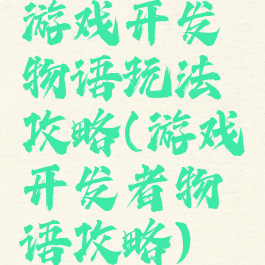 游戏开发
物语玩法
攻略(游戏
开发者物
语攻略)